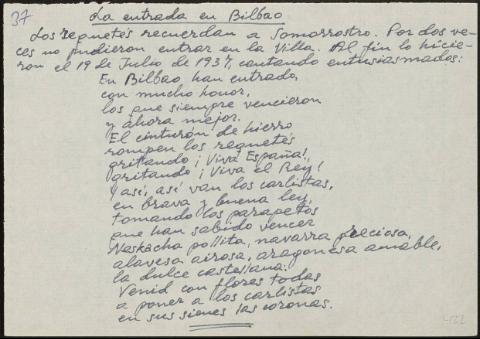 37
La entrada en Bilbao
Los requetés recuerdan a Somorrostro. Por dos ve-
ces no pudieron entrar en la Villa. Al fin lo hicie-
ron el 19 de Julio de 1937, cantando entusiasmados:
En Bilbao han entrado,
con mucho honor,
los que siempre vencieron
y ahora mejor.
El cinturón de hierro
rompen los requetés
gritando ¡Viva España!,
gritando ¡Viva el Rey!
Y así, así van los carlistas,
en brava y buena ley,
tomando los parapetos
que han sabido vencer
Naskacha pollita, navarra preciosa,
alavesa airosa, aragonesa amable,
la dulce castellana:
Venid con flores todas
a poner a los carlistas
en sus sienes las coronas.